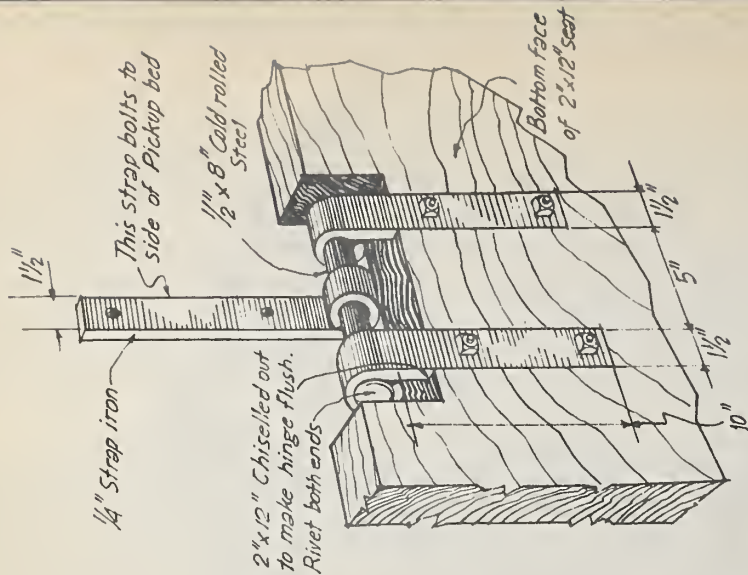 1½"
This strap bolts to
side of Pickup bed
¼" Strap iron
½" x 8" Cold rolled
Steel
2"x12" Chiselled out
to make hinge flush.
Rivet both ends
Bottom face
of 2"x12" seat
1½"
5"
1½"
10"